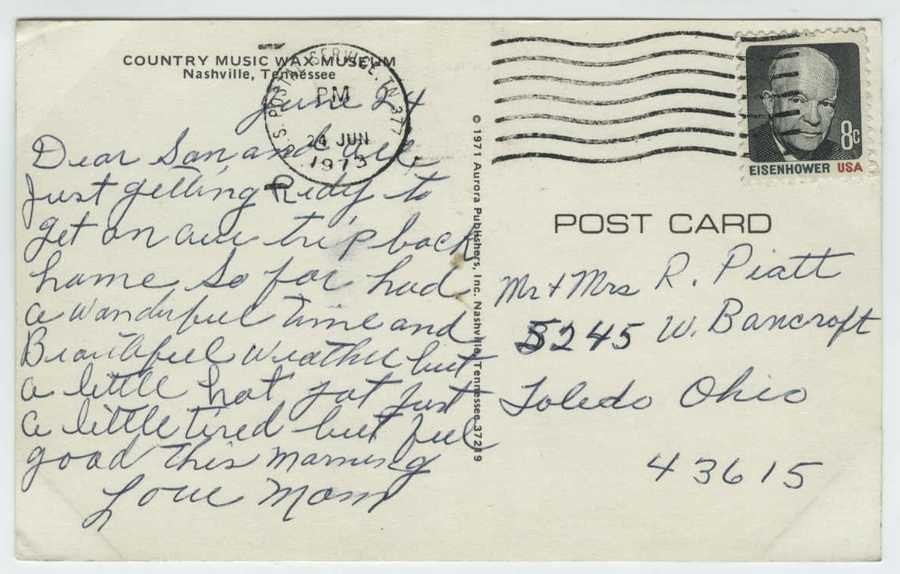 COUNTRY MUSIC WAX MUSEUM
Nashville, Tennessee
June 24
Dear Son and all
Just getting Redy to
get on our trip back
home so far had
a wonderful time and
Beautiful weather but
a little hot got just
a little tired but feel
good this morning
Love Mom
U.S. POSTAL SERVICE, TN 377
PM
24 JUN
1973
© 1971 Aurora Publishers, Inc. Nashville, Tennessee 37219
EISENHOWER USA
8c
POST CARD
Mr + Mrs R. Piatt
5245 W. Bancroft
Toledo Ohio
43615